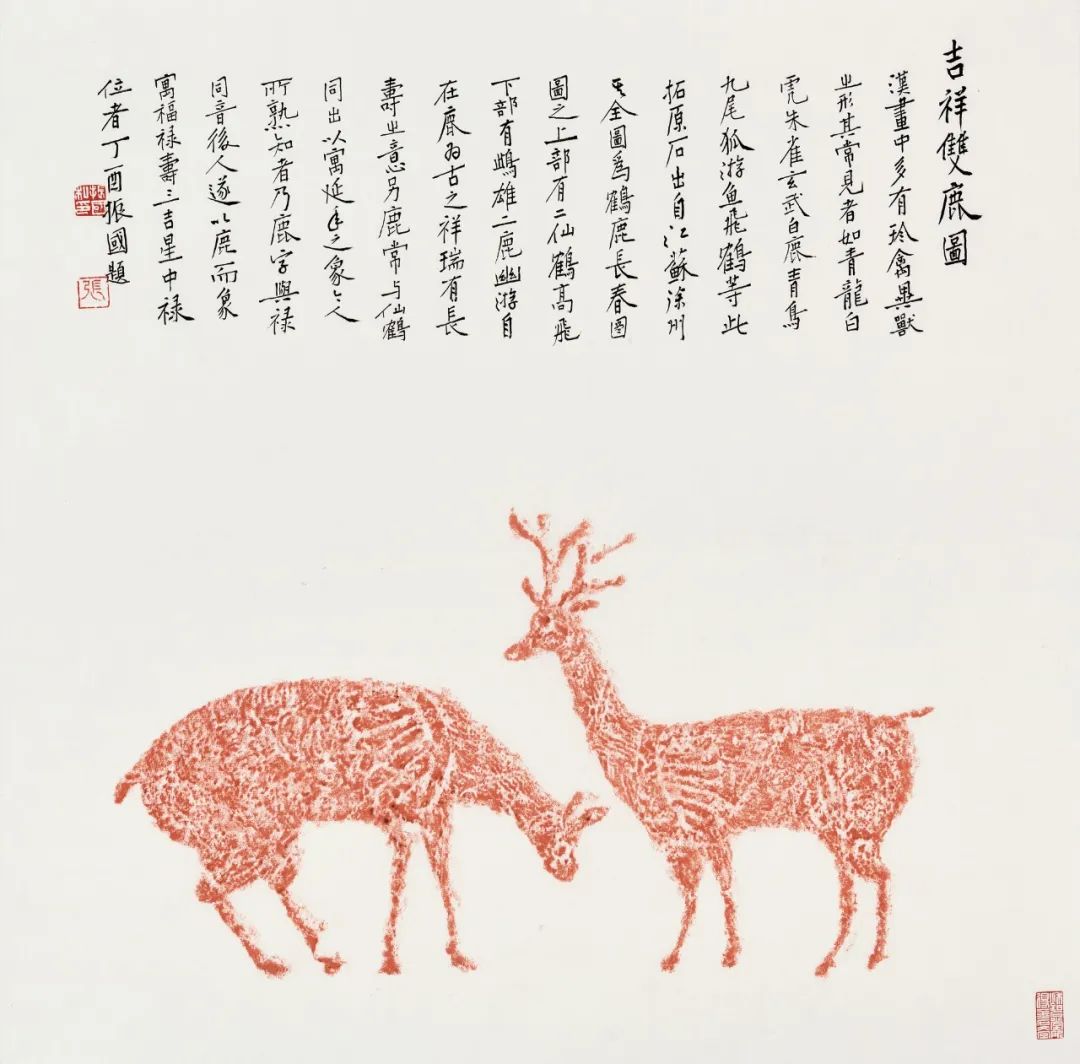 吉祥雙鹿圖
漢畫中多有珍禽異獸
之形其常見者如青龍白
虎朱雀玄武白鹿青鳥
九尾狐游魚飛鶴等此
拓原石出自江蘇徐州
其全圖爲鶴鹿長春圖
圖之上部有二仙鶴高飛
下部有雌雄二鹿幽游自
在鹿為古之祥瑞有長
壽之意另鹿常与仙鶴
同出以寓延年之象今人
所熟知者乃鹿字與祿
同音後人遂以鹿而象
寓福祿壽三吉星中祿
位者丁酉振國題
張